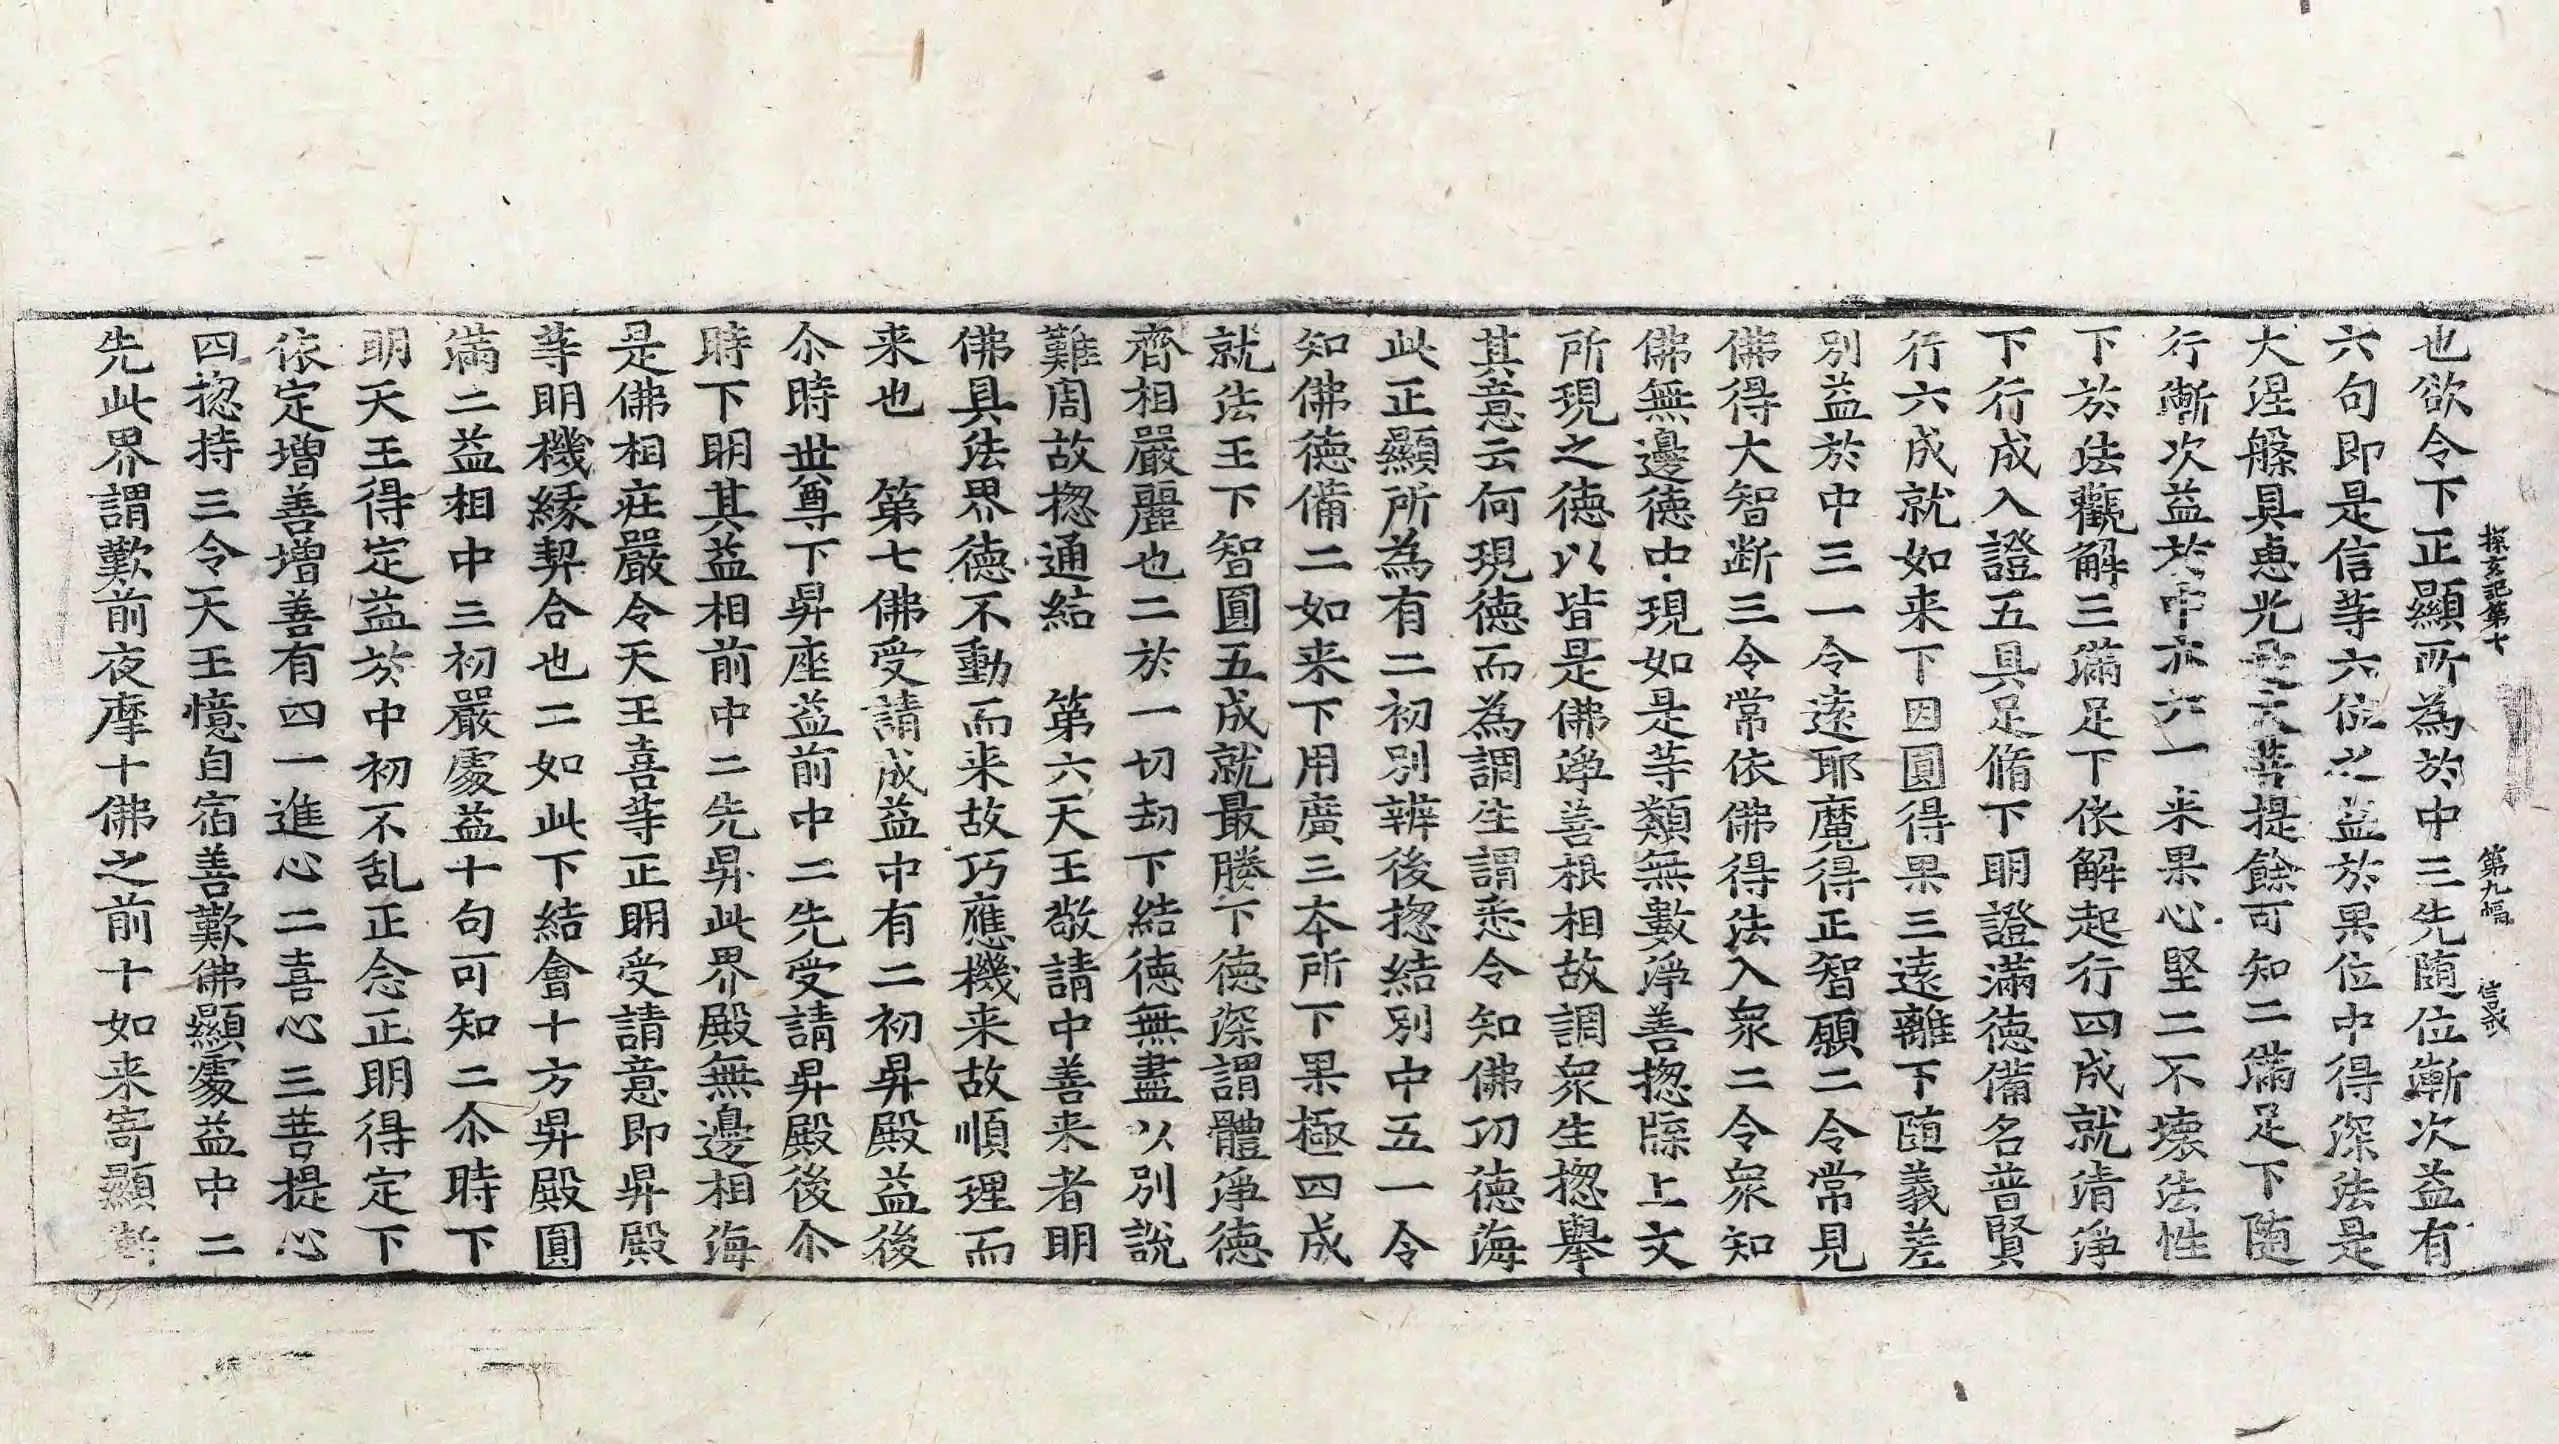 探玄記第十 第九幅 信哉
也欲令下正顯所為於中三先隨位漸次益有
六句即是信等六位之益於果位中得深法是
大涅槃具恵光是大菩提餘可知二滿足下隨
行漸次益於中亦六一来果心堅二不壊法性
下於法觀解三滿足下依解起行四成就清淨
下行成入證五具足脩下明證滿德備名普賢
行六成就如来下因圓得果三遠離下隨義差
別益於中三一令遠耶魔得正智願二令常見
佛得大智断三令常依佛得法入衆二令衆知
佛無邊德中現如是等類無數淨善揔牒上文
所現之德以皆是佛淨善根相故調衆生揔舉
其意云何現德而為調生謂悉令知佛功德海
此正顯所為有二初別辨後揔結別中五一令
知佛德備二如来下用廣三本所下果極四成
就法王下智圓五成就最勝下德深謂體淨德
齊相嚴麗也二於一切劫下結德無盡以別說
難周故揔通結 第六天王敬請中善来者明
佛具法界德不動而来故巧應機来故順理而
来也 第七佛受請成益中有二初昇殿益後
尒時世尊下昇座益前中二先受請昇殿後尒
時下明其益相前中二先昇此界殿無邊相海
是佛相莊嚴令天王喜等正明受請意即昇殿
等明機縁契合也二如此下結會十方昇殿圓
滿二益相中三初嚴處益十句可知二尒時下
明天王得定益於中初不乱正念正明得定下
依定增善增善有四一進心二喜心三菩提心
四揔持三令天王憶自宿善歎佛顯處益中二
先此界謂歎前夜摩十佛之前十如来寄顯漸